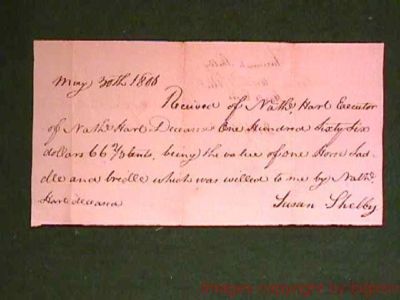 May 30th 1808
Received of Nathl. Hart Executor
of Nathl. Hart Deceased One Hundred Sixty Six
dollars 66 2/3 Cents, being the value of one Horse Sad-
dle and bridle which was willed to me by Nathl.
Hart deceasd
Susan Shelby
Images copyright by